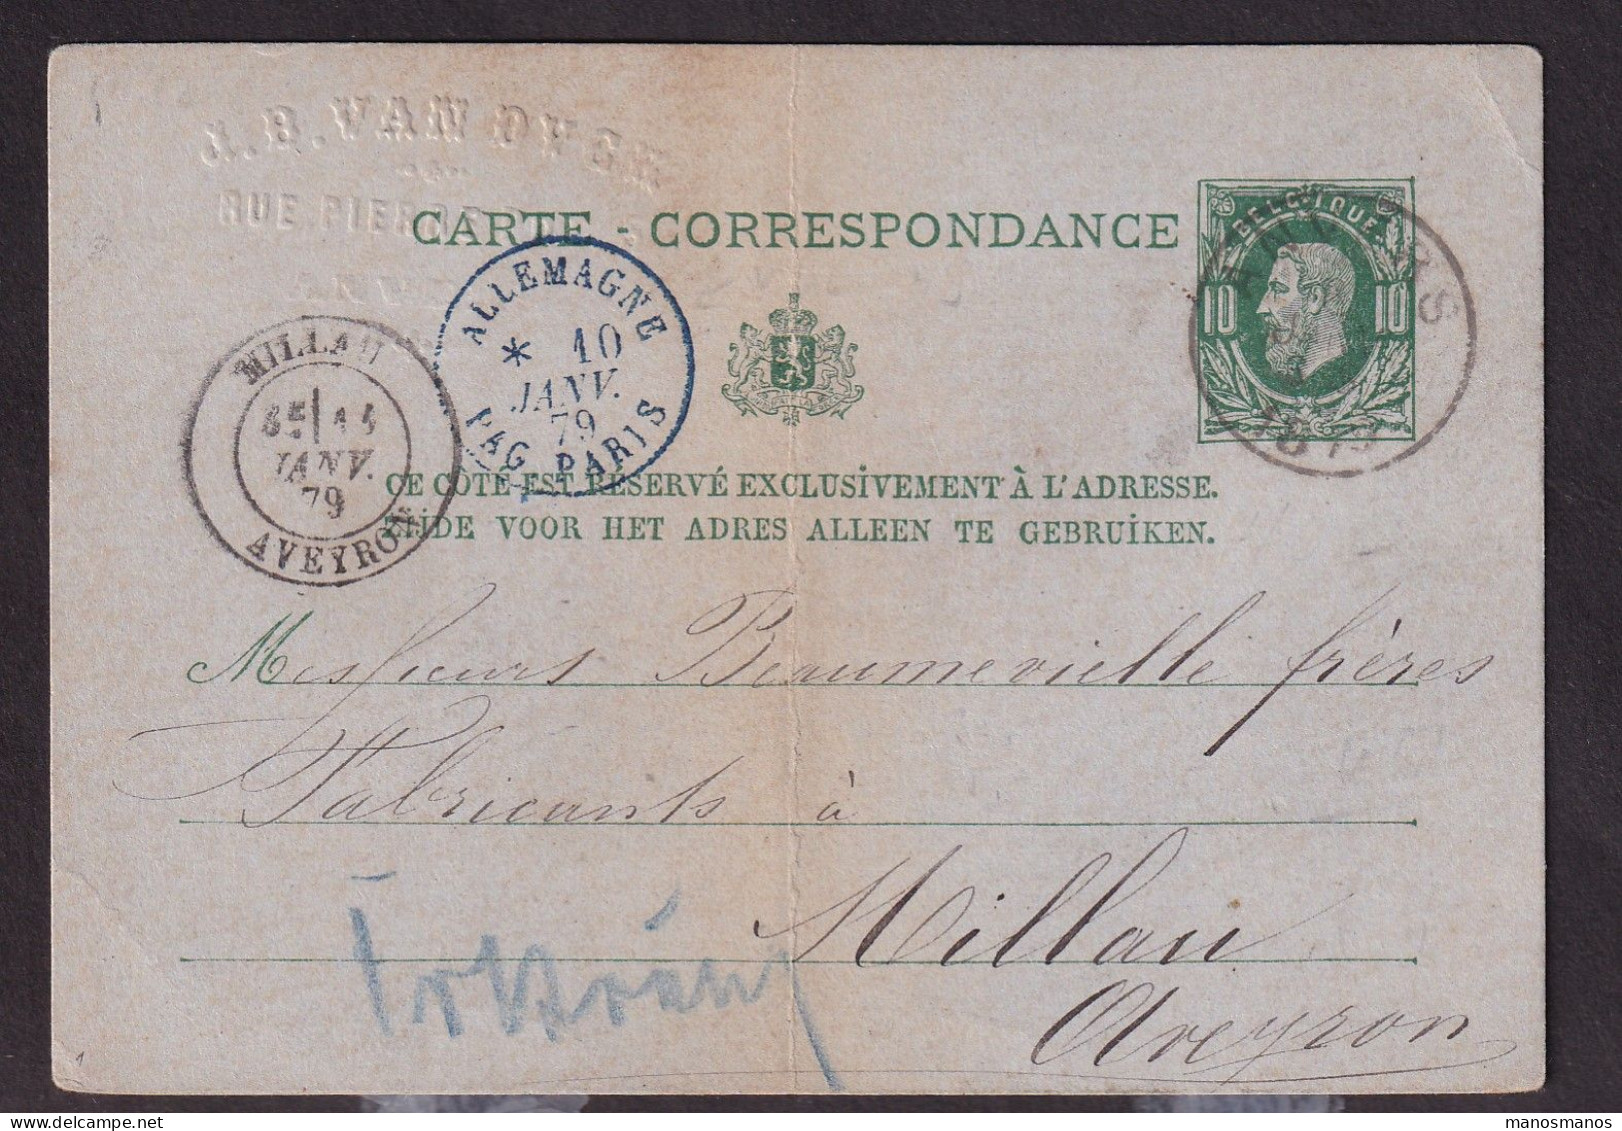 J.B. VAN DYCK
RUE PIERRE
CARTE - CORRESPONDANCE
BELGIQUE
10 10
ANVERS
1879
ALLEMAGNE
* 10
JANV.
79
PAQ. PARIS
MILLAU
JANV.
79
AVEYRON
CE CÔTÉ EST RÉSERVÉ EXCLUSIVEMENT À L'ADRESSE.
ZIJDE VOOR HET ADRES ALLEEN TE GEBRUIKEN.
Messieurs Beaumevielle frères
Fabricants à
Millau
Aveyron
1
manosmanos